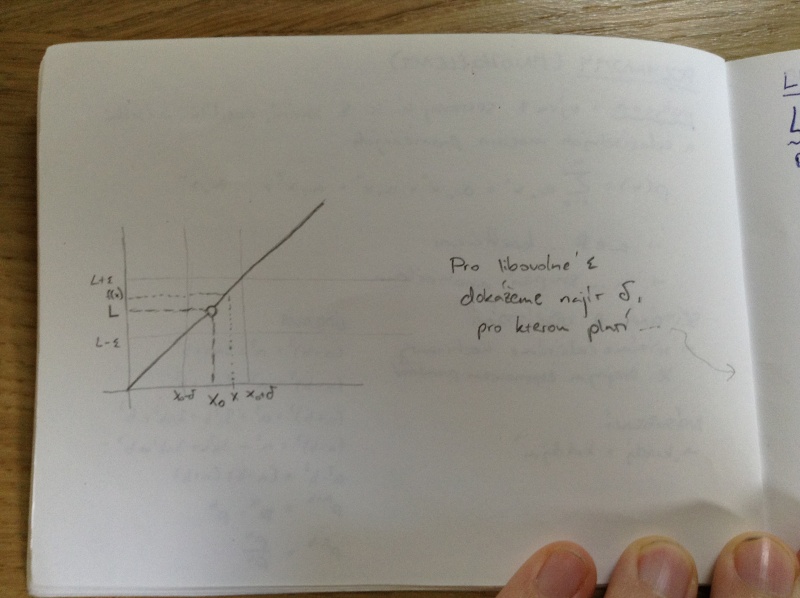 L+ε
f(x)
L
L-ε
x₀-δ x₀ x x₀+δ
Pro libovolné ε
dokážeme najít δ,
pro kterou platí ...
L
L